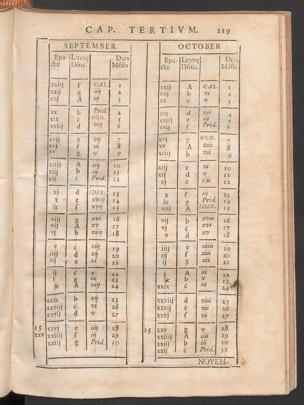 CAP. TERTIVM. 119
SEPTEMBER
Epa- Literę Dies
ctæ Dñic. Mẽsis
xxiij f CAL. 1
xxij g iiij 2
xxj A iij 3
xx b Prid. 4
xix c NON. 5
xviij d viij 6
xvij e vij 7
xvj f vj 8
xv g v 9
xiiij A iiij 10
xiij b iij 11
xij c Prid. 12
xj d IDIB. 13
x e xviij 14
ix f xvij 15
viij g xvj 16
vij A xv 17
vj b xiiij 18
v c xiij 19
iiij d xij 20
iij e xj 21
ij f x 22
j g ix 23
* A viij 24
xxix b vij 25
xxviij c vj 26
xxvij d v 27
25 xxvj e iiij 28
xxv xxiiij f iij 29
xxiij g Prid. 30
OCTOBER
Epa- Literę Dies
ctæ Dñic. Mẽsis
xxij A CAL. 1
xxj b vj 2
xx c v 3
xix d iiij 4
xviij e iij 5
xvij f Prid. 6
xvj g NON. 7
xv A viij 8
xiiij b vij 9
xiij c vj 10
xij d v 11
xj e iiij 12
x f iij 13
ix g Prid. 14
viij A IDIB. 15
vij b xvij 16
vj c xvj 17
v d xv 18
iiij e xiiij 19
iij f xiij 20
ij g xij 21
j A xj 22
* b x 23
xxix c ix 24
xxviij d viij 25
xxvij e vij 26
xxvj f vj 27
25 xxv g v 28
xxiiij A iiij 29
xxiij b iij 30
xxij c Prid. 31
NOVEM-